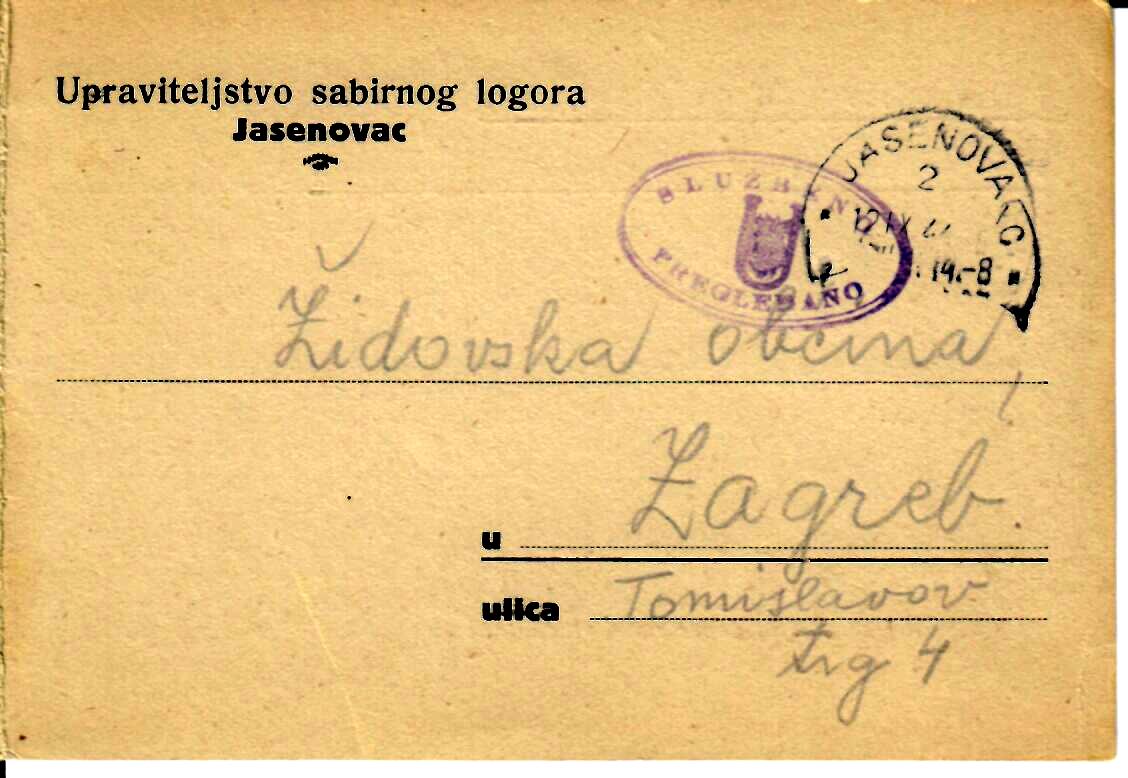 Upraviteljstvo sabirnog logora
Jasenovac
JASENOVAC
2
12 IX
14-8
SLUŽBENO
PREGLEDANO
Židovska občina,
u Zagreb
ulica Tomislavov
trg 4